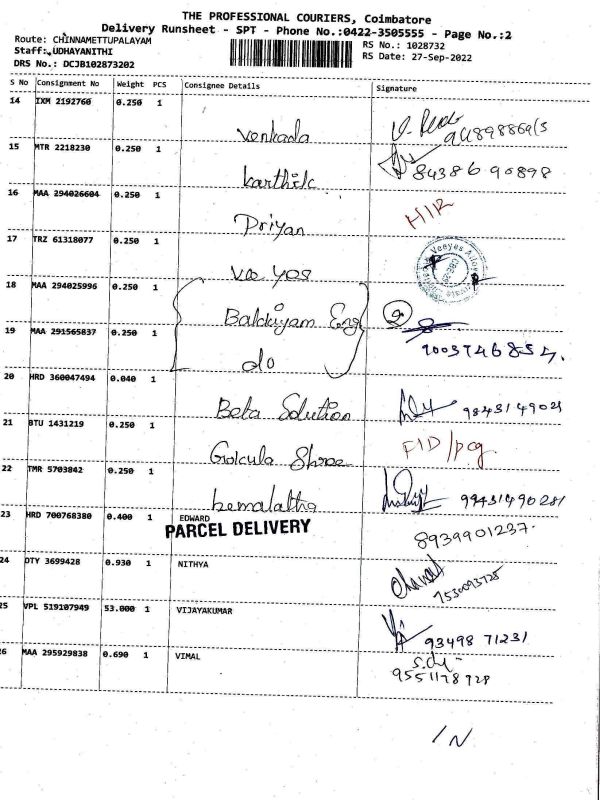 THE PROFESSIONAL COURIERS, Coimbatore
Delivery Runsheet - SPT - Phone No.:0422-3505555 - Page No.:2
Route: CHINNAMETTUPALAYAM
RS No.: 1028732
Staff: UDHAYANITHI
RS Date: 27-Sep-2022
DRS No.: DCJB102873202
S No Consignment No Weight PCS Consignee Details Signature
14 IXM 2192760 0.250 1
venkada
15 MTR 2218230 0.250 1
karthik 84386 90898
16 MAA 294026604 0.250 1
Priyan
17 TRZ 61318077 0.250 1
Vee yes
Veeyes Alloy
18 MAA 294025996 0.250 1
Eng 2
19 MAA 291565837 0.250 1
do
20 HRD 360047494 0.040 1
Beta Solution
21 BTU 1431219 0.250 1
Gokula Shree
22 TMR 5703842 0.250 1
hemalatha 99431490281
23 HRD 700768380 0.400 1 EDWARD
PARCEL DELIVERY
8939901237.
24 DTY 3699428 0.930 1 NITHYA
7530093725
25 VPL 519107949 53.000 1 VIJAYAKUMAR
93498 71231
26 MAA 295929838 0.690 1 VIMAL
9551178928
IN